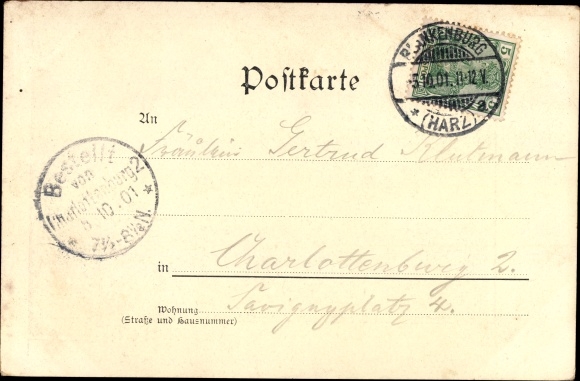 BLANKENBURG
5
3.10.01. 11-12 V.
* 2c
(HARZ)
Postkarte
An
Fräulein Gertrud Klutmann
Bestellt
von
Charlottenburg 2
10.01
* 7½-8½ N. *
in Charlottenburg 2.
Wohnung Savignyplatz 4.
(Straße und Hausnummer)